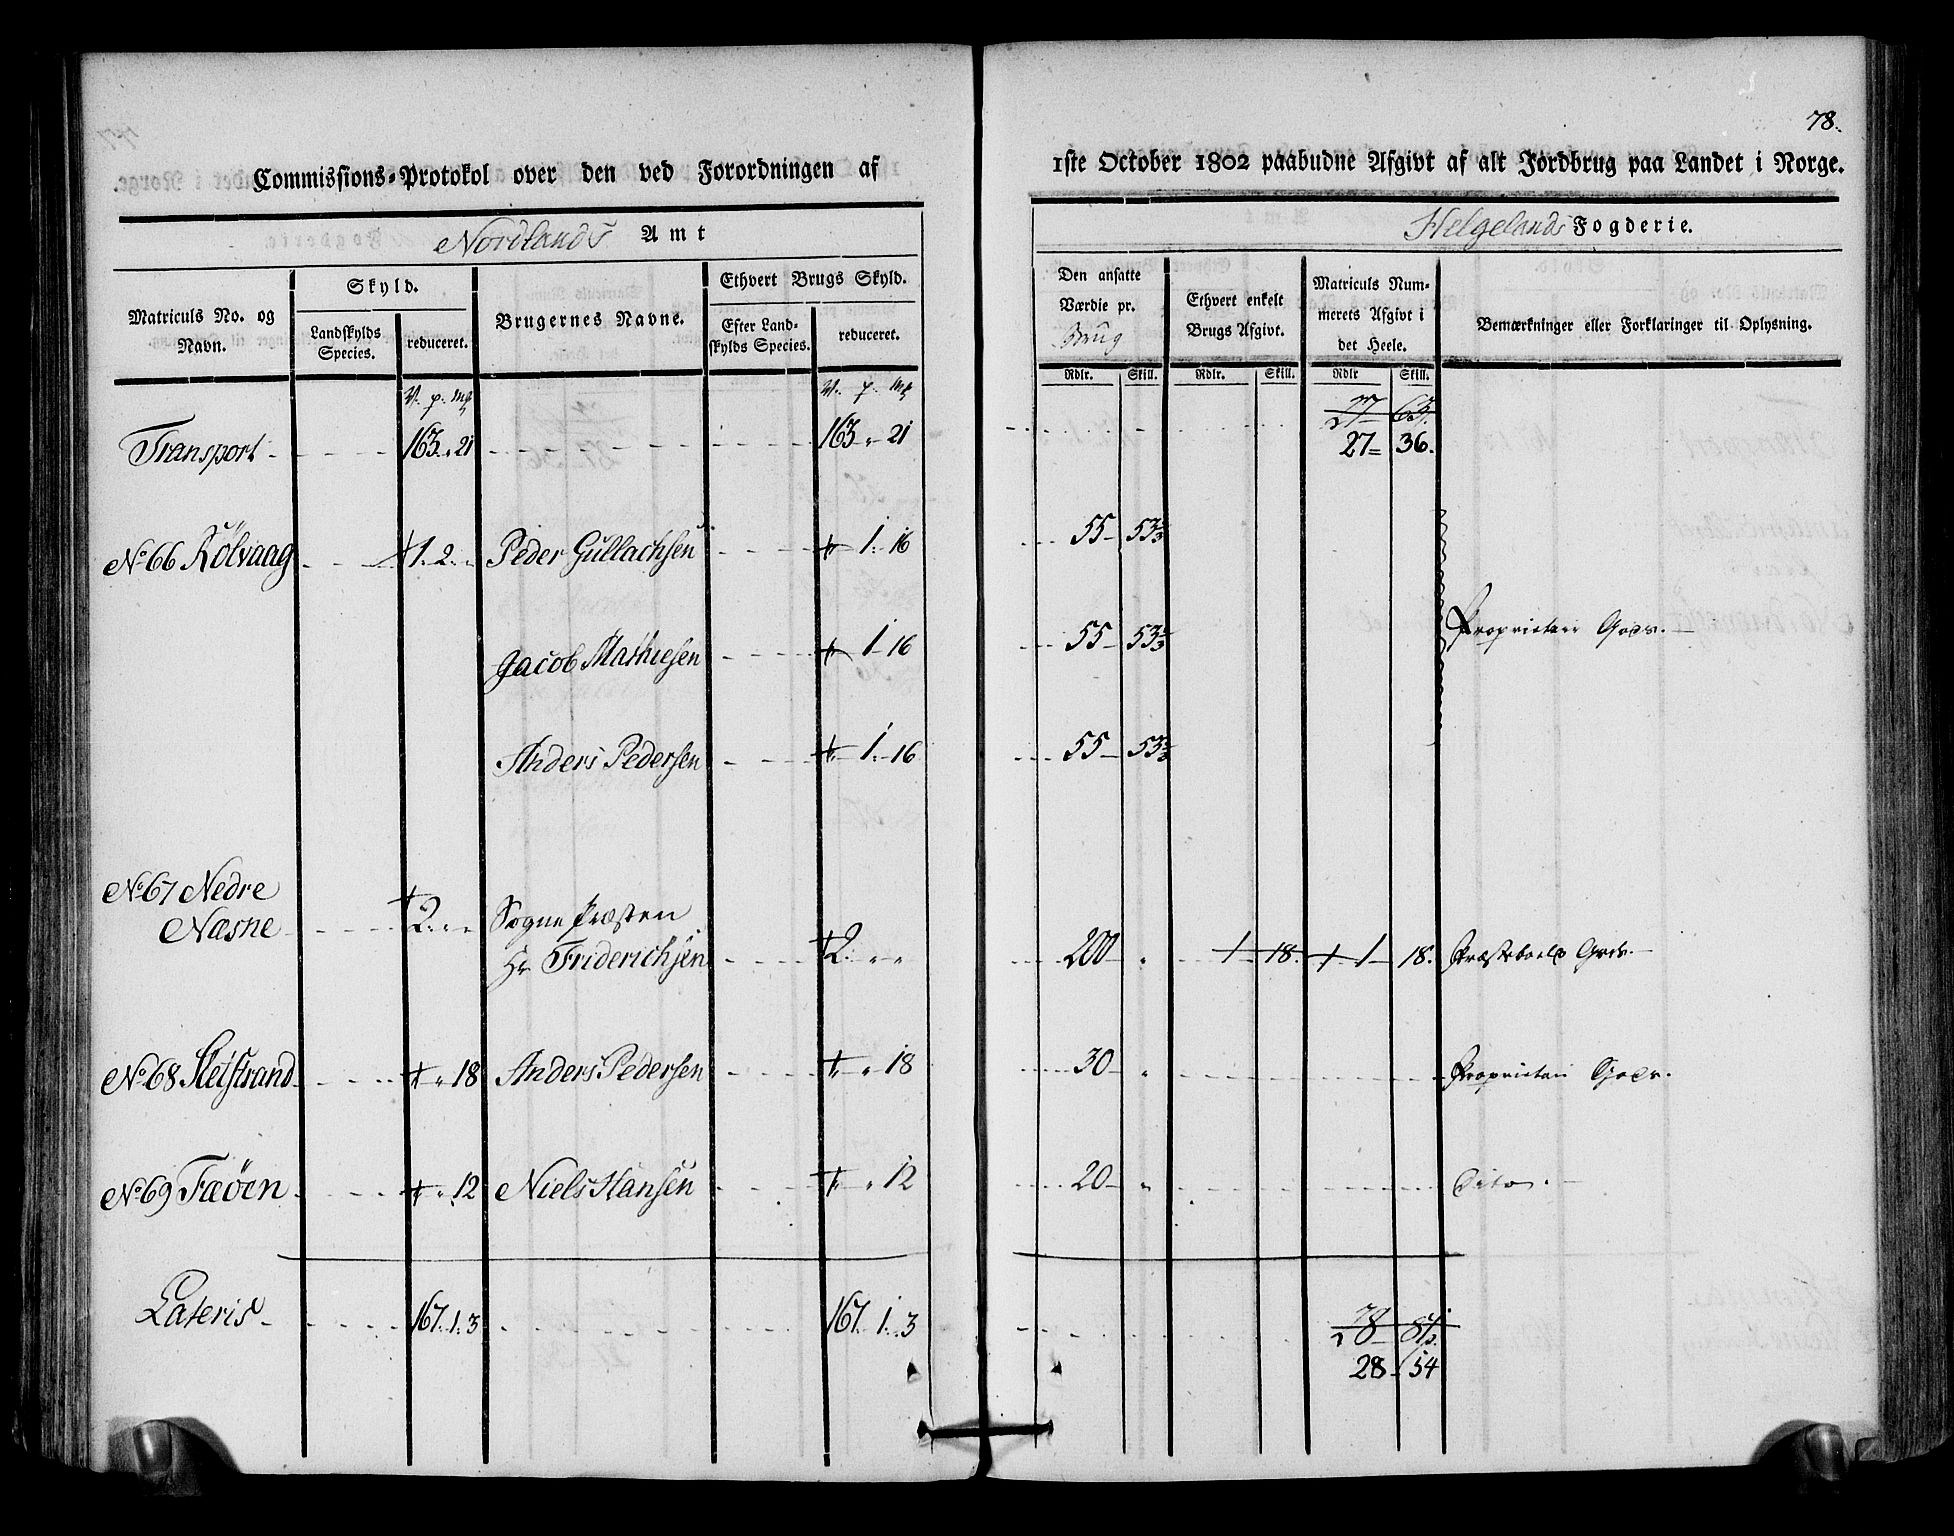 78.
Commissions-Protokol over den ved Forordningen af
1ste October 1802 paabudne Afgivt af alt Jordbrug paa Landet i Norge.
Nordlands Amt
Helgelands Fogderie.
Matriculs No. og Navn.
Skyld.
Landskylds Species.
reduceret.
Brugernes Navne.
Ethvert Brugs Skyld.
Efter Landskylds Species.
reduceret.
Den ansatte Værdie pr. Brug
Ethvert enkelt Brugs Afgivt.
Matriculs Nummerets Afgivt i det Heele.
Bemærkninger eller Forklaringer til Oplysning.
V. p. mk V. p. mk Rdlr. Skill. Rdlr. Skill. Rdlr Skill.
27 63.
Transport 163. " 21 163 " 21 27 = 36.
No 66 Kölvaag 1. 2. " Peder Gullachsen 1. 16 55 53 1/3
Jacob Mathiesen 1 16 55 53 1/3 Proprietair Gods.
Anders Pedersen 1. 16 55 53 1/3
No 67 Nedre
Næsne 2. " " Sogne Præsten
Hr Friderichsen 2. " " 200 " 1 18. 1 18. Præsteboels Gods.
No 68 Sleistrand " 18 Anders Pedersen " 18 30 " Proprietair Gods.
No 69 Fæöen " 12 Niels Hansen " 12 20 " Dito.
Lateris 167. 1. 3 167. 1. 3 28 81.
28 54